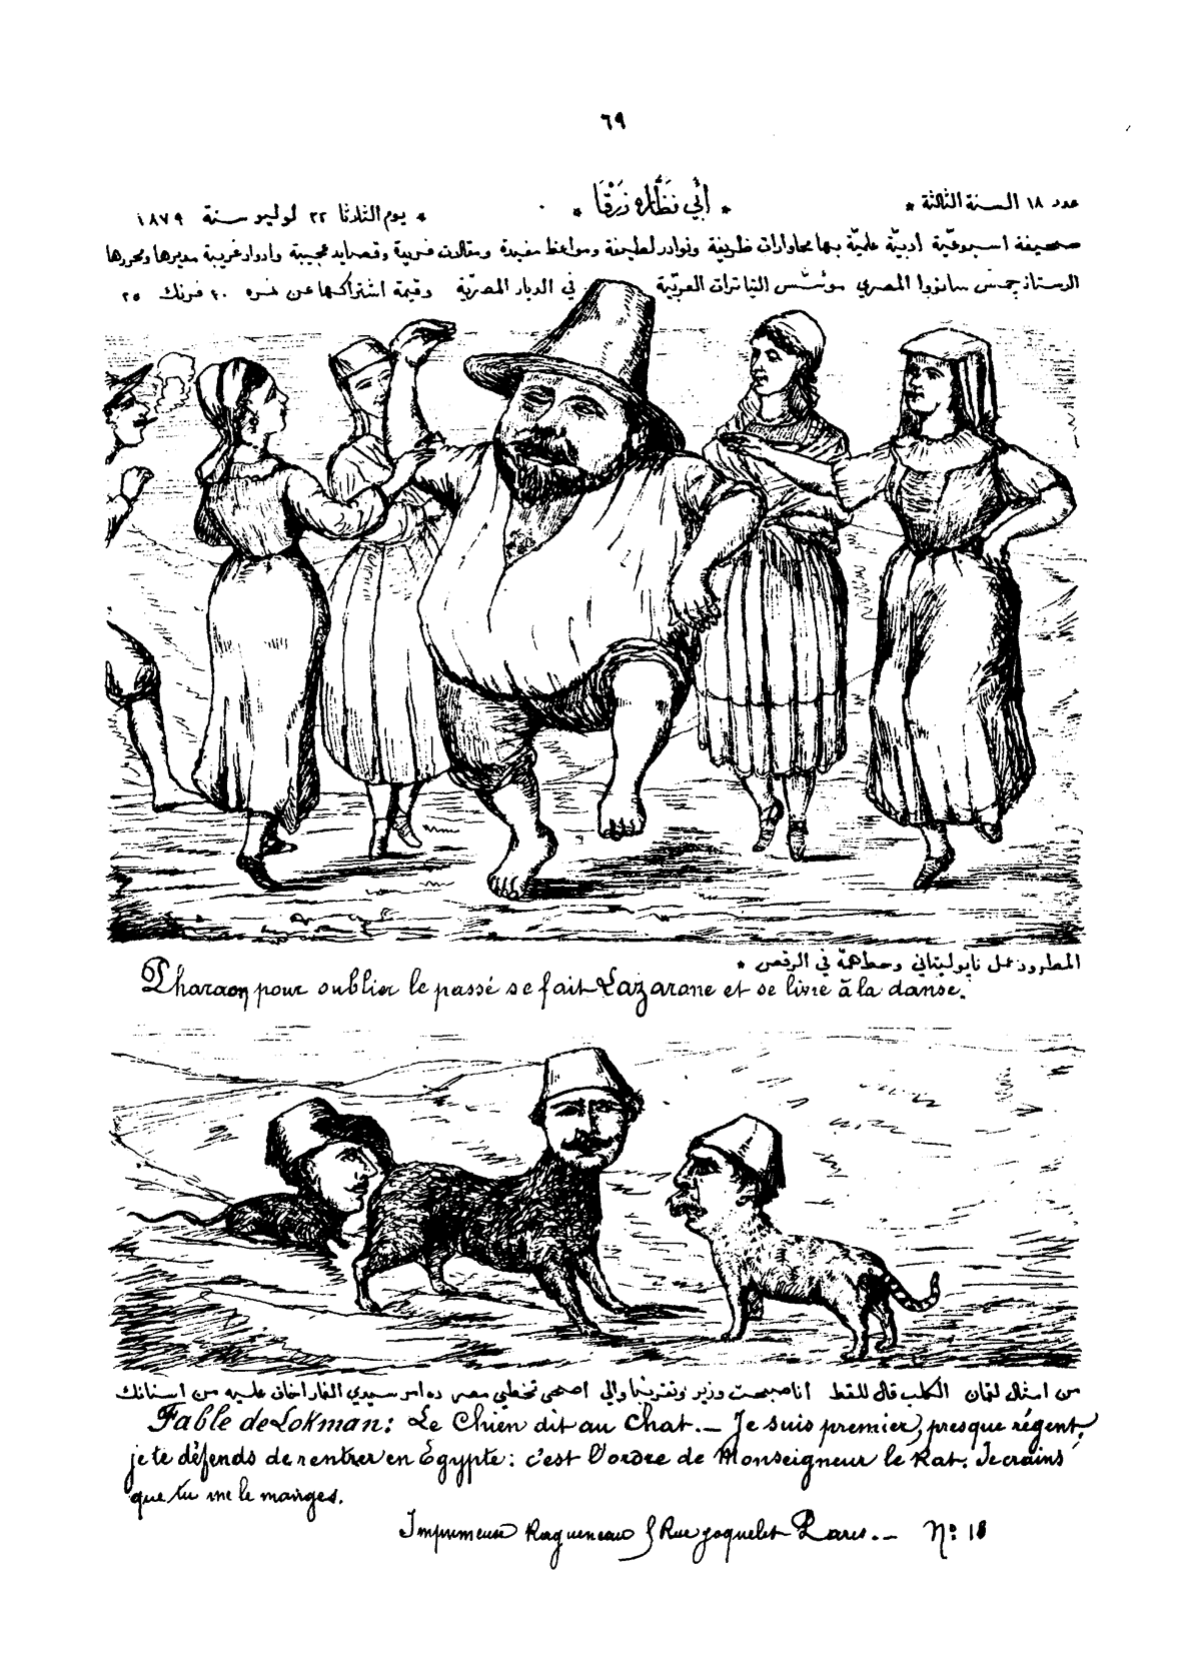 ٦٩
عدد ١٨ السنة الثالثة * * أبي نظاره زرقا * * يوم الثلاثا ٢٢ لوليو سنة ١٨٧٩
صحيفة اسبوعيّة أدبيّة علميّة بها محاورات ظريفة ونوادر لطيفة ومواعظ مفيدة ومقالات فريدة وقصايد عجيبة وادوار غريبة مديرها ومحررها
الاستاذ جمس سانووا المصري مؤسّس التياترات العربيّة في الديار المصريّة وقيمة اشتراكها عن نمره ٣٠ فرنك ٢٥
المطرود عمل نابوليتاني وحط همّه في الرقص *
Pharaon pour oublier le passé se fait Lazarone et se livre à la danse.
من امثال لقمان الكلب قال للقط انا صبحت وزير وتقريبا والي اصحى تخطي مصر ده امر سيدي الفار اخاف عليه من اسنانك
Fable de Lokman: Le Chien dit au Chat. _ Je suis premier, presque régent,
je te défends de rentrer en Égypte: c'est l'ordre de Monseigneur le Rat. Je crains
que tu me le manges.
Imprimeur Ragueneau Rue Joquelet Paris. _ No: 18